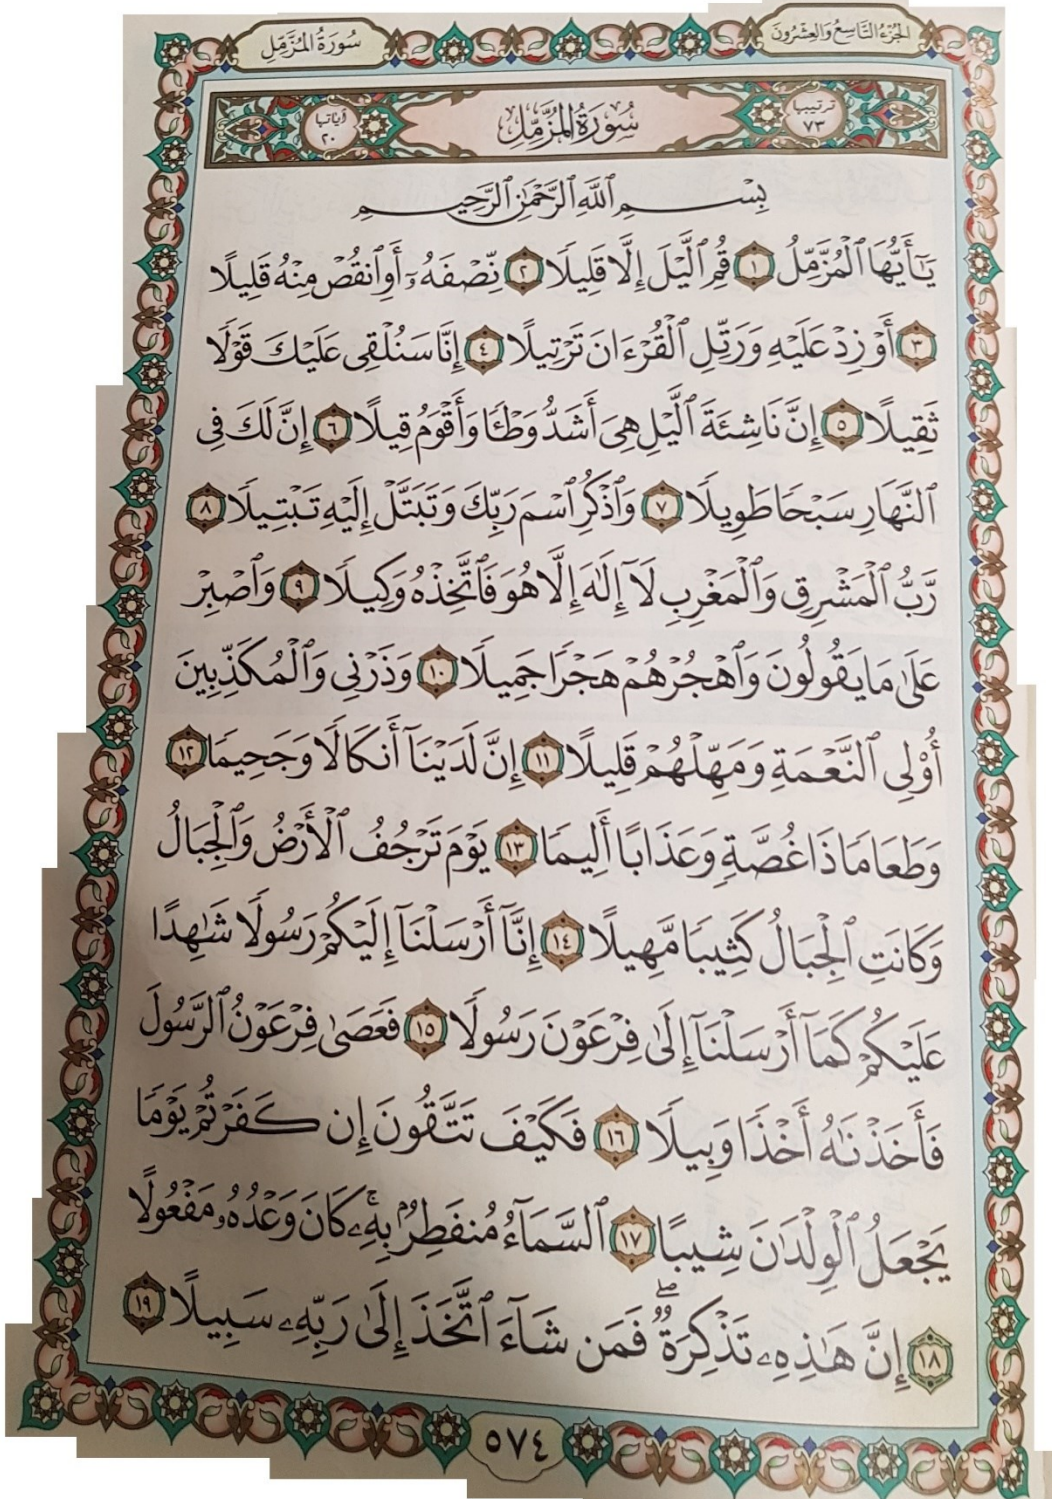 الجُزْءُ التَّاسِعُ وَالعِشْرُونَ
سُورَةُ المُزَّمِّل
ترتيبها ٧٣
سُورَةُ المُزَّمِّل
آياتها ٢٠
بِسْمِ ٱللَّهِ ٱلرَّحْمَٰنِ ٱلرَّحِيمِ
يَٰٓأَيُّهَا ٱلْمُزَّمِّلُ ١ قُمِ ٱلَّيْلَ إِلَّا قَلِيلًا ٢ نِّصْفَهُۥٓ أَوِ ٱنقُصْ مِنْهُ قَلِيلًا
٣ أَوْ زِدْ عَلَيْهِ وَرَتِّلِ ٱلْقُرْءَانَ تَرْتِيلًا ٤ إِنَّا سَنُلْقِى عَلَيْكَ قَوْلًا
ثَقِيلًا ٥ إِنَّ نَاشِئَةَ ٱلَّيْلِ هِىَ أَشَدُّ وَطْـًٔا وَأَقْوَمُ قِيلًا ٦ إِنَّ لَكَ فِى
ٱلنَّهَارِ سَبْحًا طَوِيلًا ٧ وَٱذْكُرِ ٱسْمَ رَبِّكَ وَتَبَتَّلْ إِلَيْهِ تَبْتِيلًا ٨
رَّبُّ ٱلْمَشْرِقِ وَٱلْمَغْرِبِ لَآ إِلَٰهَ إِلَّا هُوَ فَٱتَّخِذْهُ وَكِيلًا ٩ وَٱصْبِرْ
عَلَىٰ مَا يَقُولُونَ وَٱهْجُرْهُمْ هَجْرًا جَمِيلًا ١٠ وَذَرْنِى وَٱلْمُكَذِّبِينَ
أُو۟لِى ٱلنَّعْمَةِ وَمَهِّلْهُمْ قَلِيلًا ١١ إِنَّ لَدَيْنَآ أَنكَالًا وَجَحِيمًا ١٢
وَطَعَامًا ذَا غُصَّةٍ وَعَذَابًا أَلِيمًا ١٣ يَوْمَ تَرْجُفُ ٱلْأَرْضُ وَٱلْجِبَالُ
وَكَانَتِ ٱلْجِبَالُ كَثِيبًا مَّهِيلًا ١٤ إِنَّآ أَرْسَلْنَآ إِلَيْكُمْ رَسُولًا شَٰهِدًا
عَلَيْكُمْ كَمَآ أَرْسَلْنَآ إِلَىٰ فِرْعَوْنَ رَسُولًا ١٥ فَعَصَىٰ فِرْعَوْنُ ٱلرَّسُولَ
فَأَخَذْنَٰهُ أَخْذًا وَبِيلًا ١٦ فَكَيْفَ تَتَّقُونَ إِن كَفَرْتُمْ يَوْمًا
يَجْعَلُ ٱلْوِلْدَٰنَ شِيبًا ١٧ ٱلسَّمَآءُ مُنفَطِرٌۢ بِهِۦ ۚ كَانَ وَعْدُهُۥ مَفْعُولًا
١٨ إِنَّ هَٰذِهِۦ تَذْكِرَةٌ ۖ فَمَن شَآءَ ٱتَّخَذَ إِلَىٰ رَبِّهِۦ سَبِيلًا ١٩
٥٧٤